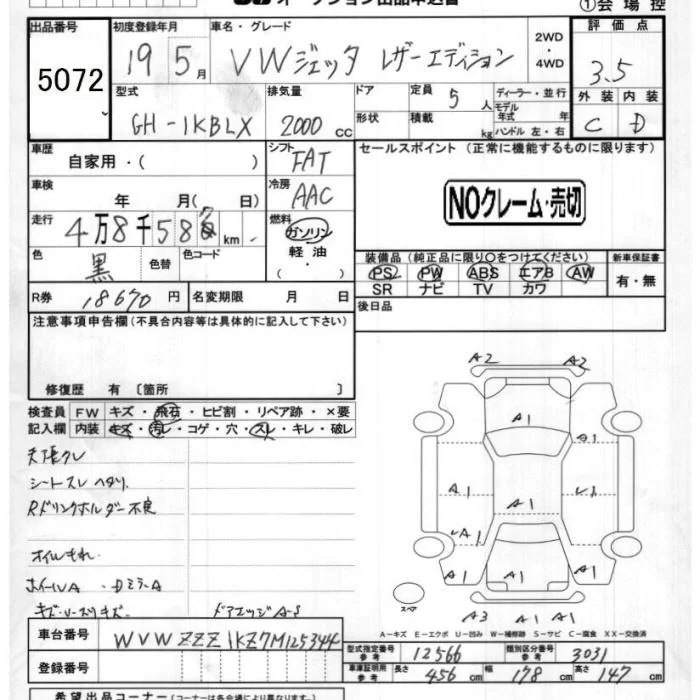 ①会場控
出品番号 5072
初度登録年月 19 5月
車名・グレード VWジェッタ レザーエディション
2WD・4WD
評価点 3.5
外装 C 内装 D
型式 GH-1KBLX
排気量 2000 cc
ドア 形状
定員 5人
積載 kg
ディーラー・並行
モデル年式 年
ハンドル 左・右
車歴 自家用・( )
シフト FAT
冷房 AAC
セールスポイント(正常に機能するものに限ります)
NOクレーム・売切
車検 年 月( 日)
走行 4万8千58 km
燃料 ガソリン 軽油 ・( )
色 黒 色替 色コード
装備品(純正品に限り○をつけてください)
PS PW ABS エアB AW
SR ナビ TV カワ
新車保証書 有・無
R券 18670円
名変期限 月 日
後日品
注意事項申告欄(不具合内容等は具体的に記入して下さい)
修復歴 有 〔箇所 〕
検査員記入欄
FW キズ・飛石・ヒビ割・リペア跡・×要
内装 キズ・汚レ・コゲ・穴・スレ・キレ・破レ
天張クレ
シートスレ ヘタリ
Rドリンクホルダー不良
オイルもれ
ホイールA ・DミラーA
ドアエッジA-S
A2 A2
A1
A1
A1 A1
A1
A1 A1 A1
スペア
A3 A1 A1
A-キズ E-エクボ U-凹み W-補修跡 S-サビ C-腐食 XX-交換済
車台番号 WVWZZZ1KZ7M125344
登録番号
型式指定番号 参考 12566
類別区分番号 参考 3031
車庫証明用 参考 長さ 456cm 幅 178cm 高さ 147cm
希望出品コーナー(コーナーは各会場により異なります。)